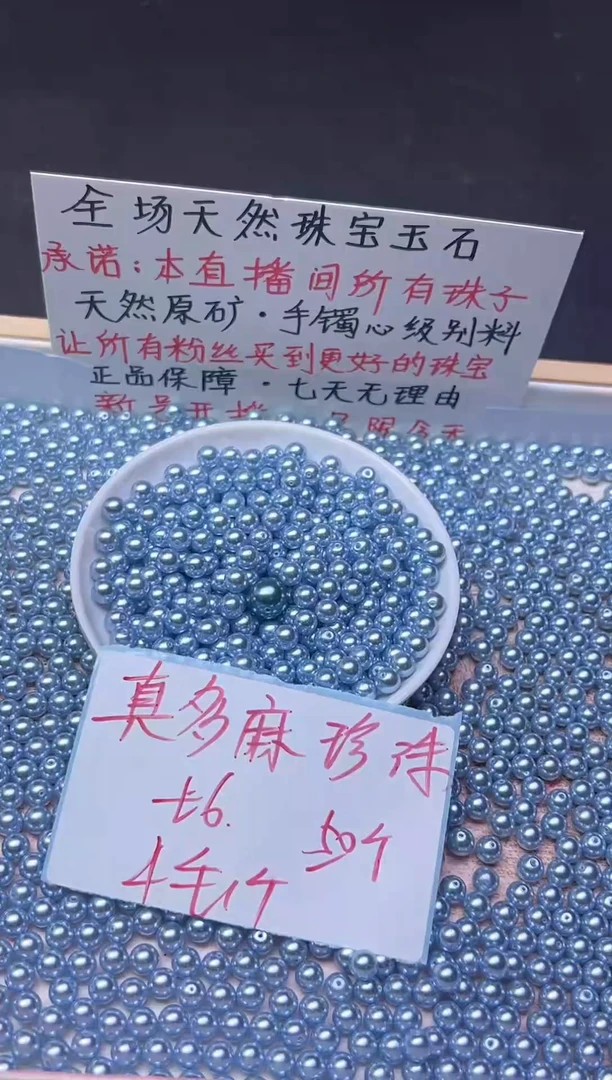 全场天然珠宝玉石
承诺:本直播间所有珠子
天然原矿·手镯心级别料
让所有粉丝买到更好的珠宝
正品保障·七天无理由
新号开播
真多麻珍珠
卡6.
50个
4毛1个